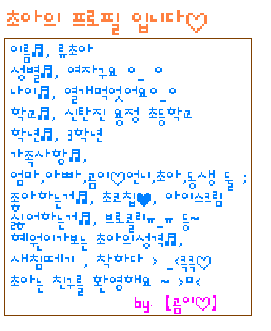 초아의 프로필 입니다♡
이름♬, 류초아
성별♬, 여자구요 o_ o
나이♬, 열개먹엇어요o_o
학교♬, 신탄진 용정 초등학교
학년♬, 3학년
가족사항♬,
엄마,아빠,곰이♡언니,초아,동생 둘 ;
조아하는거♬, 초코칩♥, 아이스크림
싫어하는거♬, 브로콜리ㅠ_ㅠ 등~
혜연이가보는 초아의성격♬,
새침떼기 , 착하다 > _<큭큭♡
초아는 친구를 환영해요 ~ >ㅁ<
by. [곰이♡]